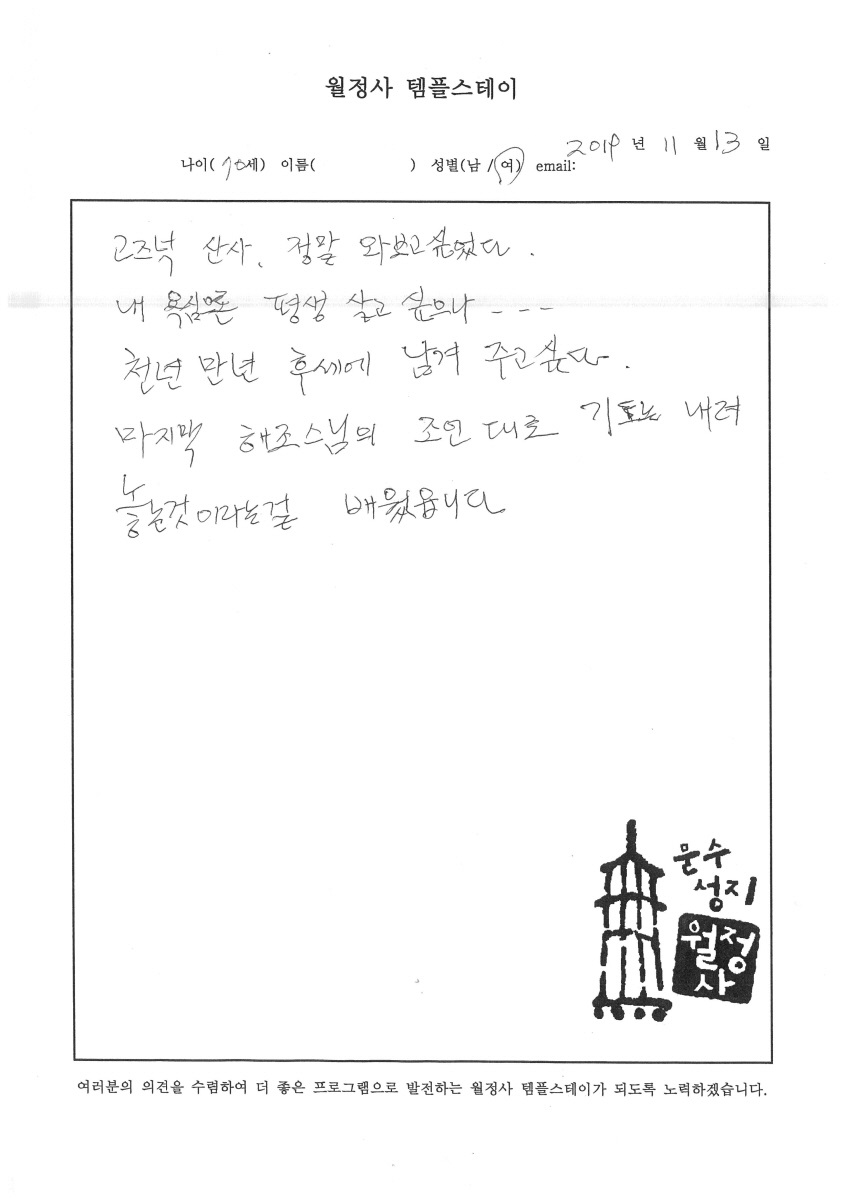 월정사 템플스테이
2019 년 11 월 13 일
나이( 70세) 이름( ) 성별(남 / 여) email:
고즈넉 산사, 정말 와보고싶었다.
내 욕심으론 평생 살고 싶으나 - - -
천년 만년 후세에 남겨 주고싶다.
마지막 해조스님의 조언 대로 기도는 내려
놓는것이라는걸 배웠읍니다
문수
성지
월정
사
여러분의 의견을 수렴하여 더 좋은 프로그램으로 발전하는 월정사 템플스테이가 되도록 노력하겠습니다.